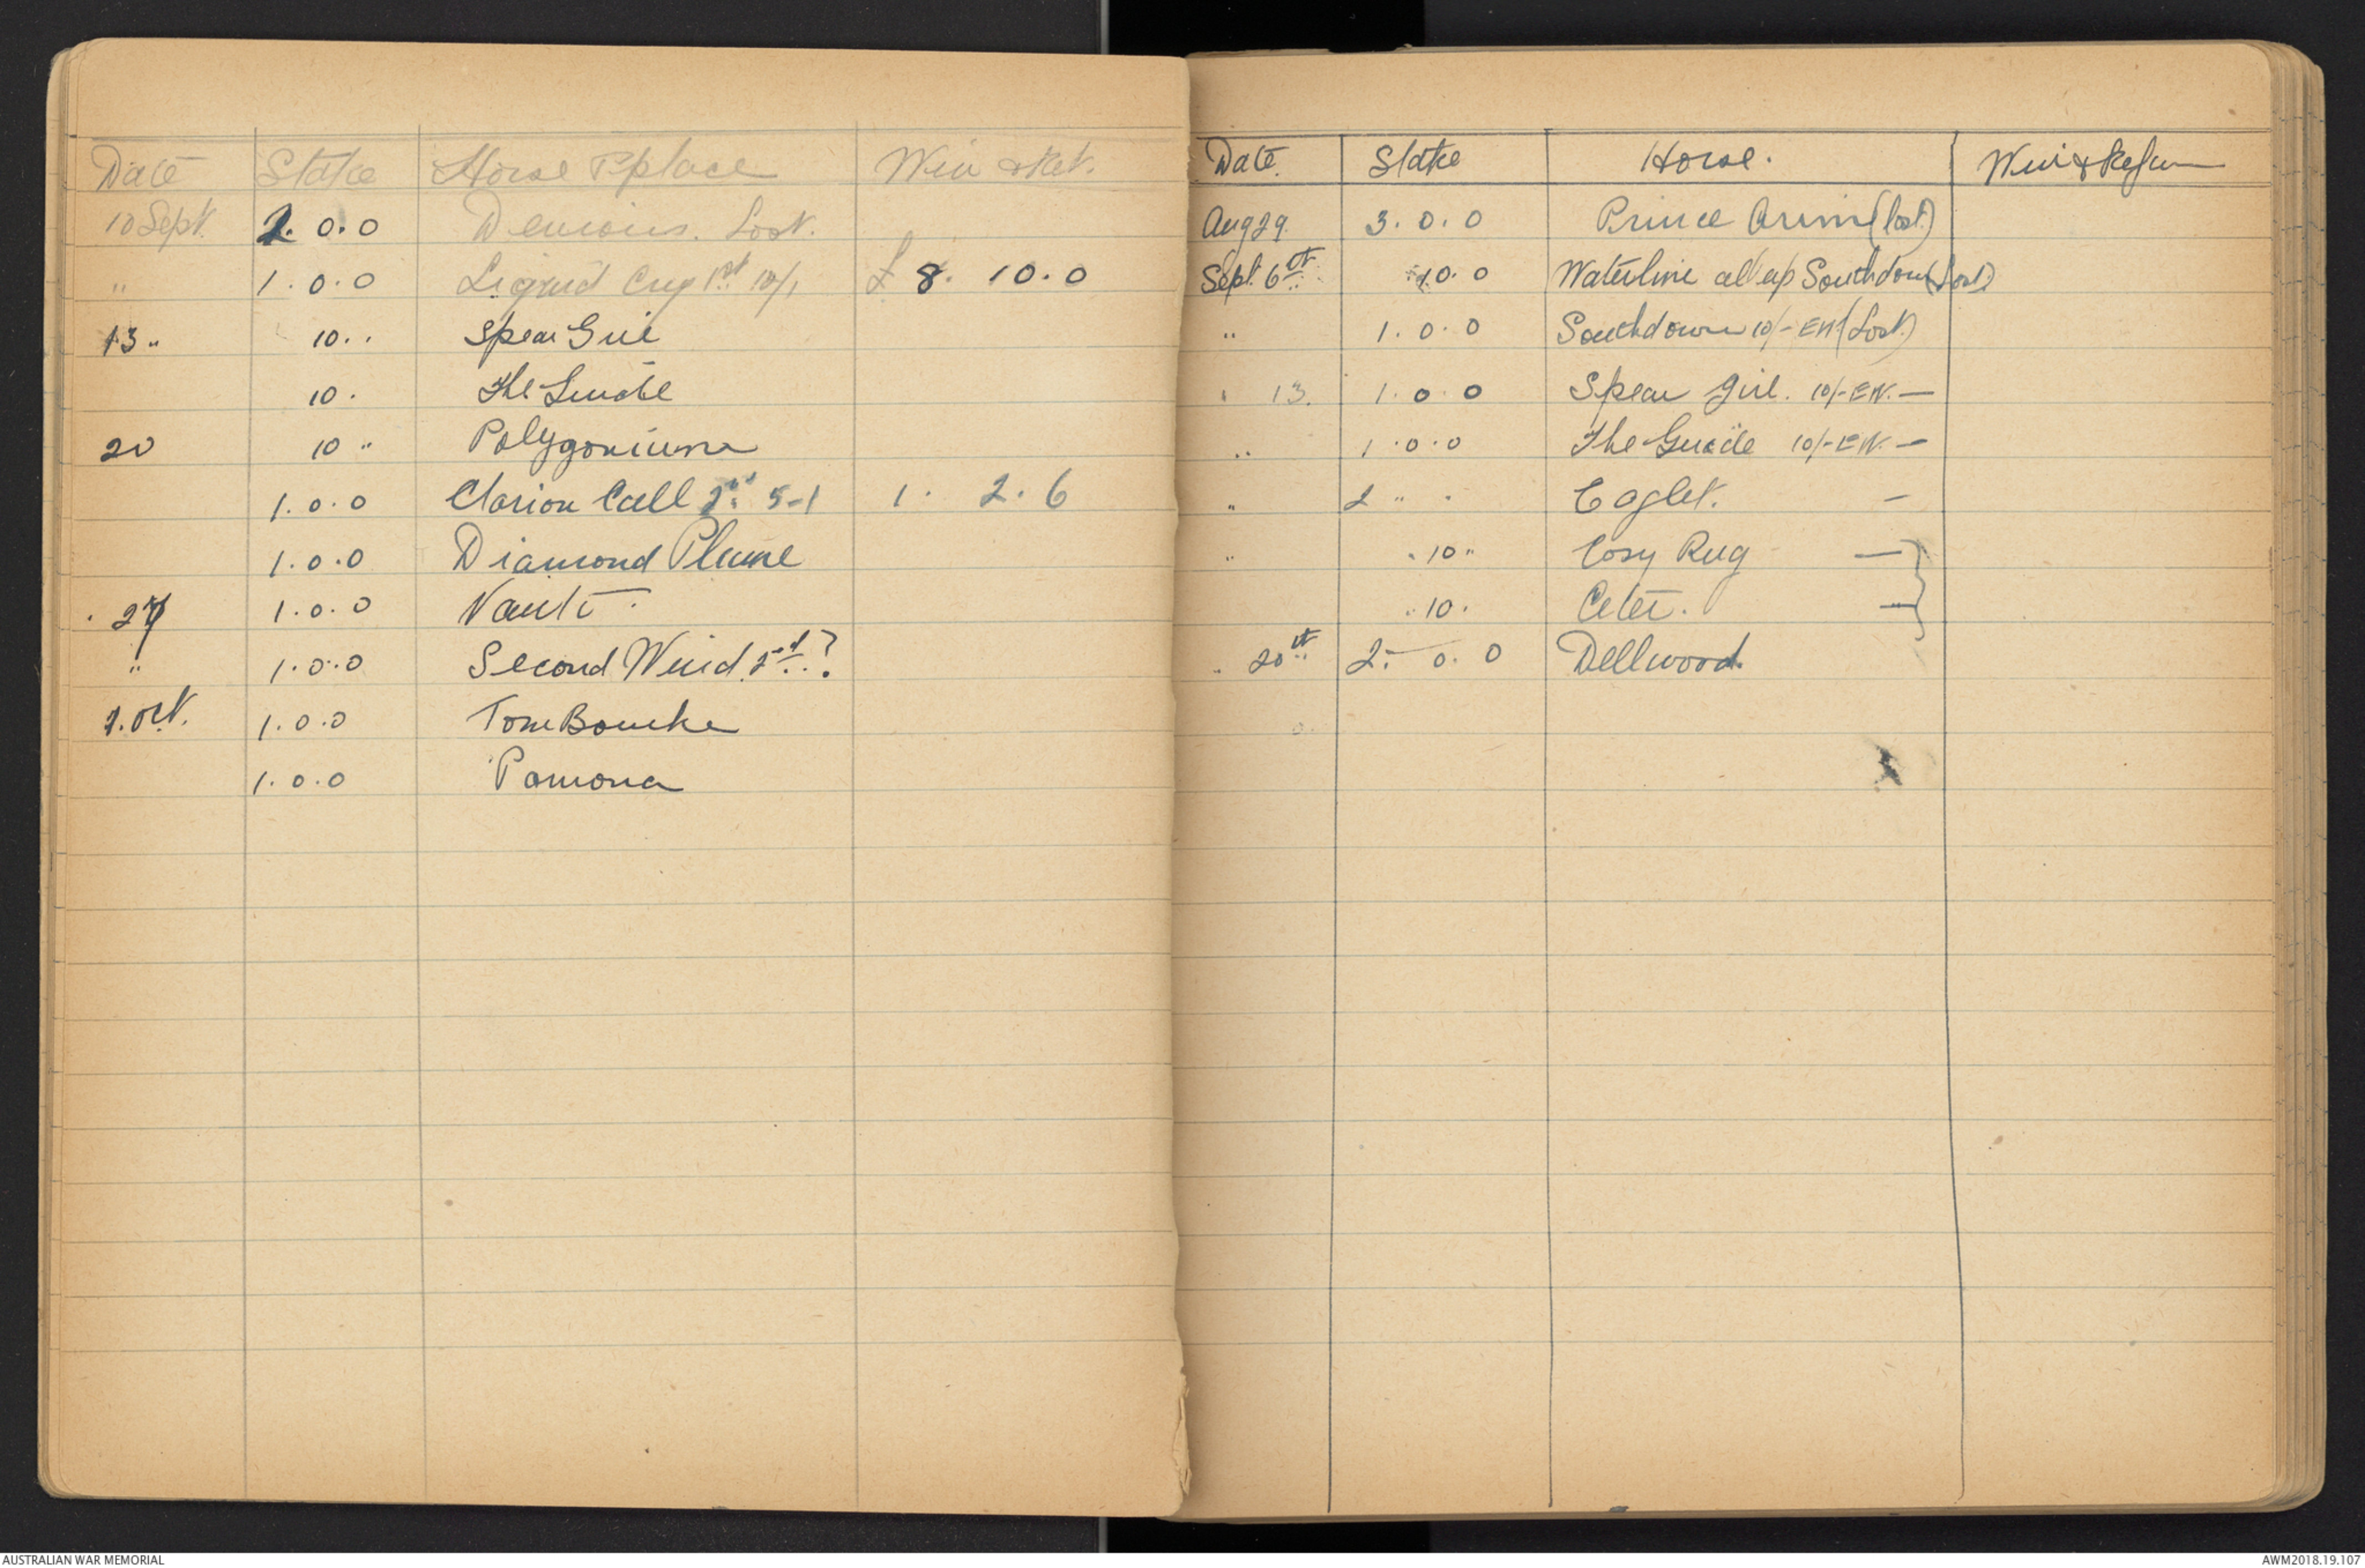 Date Stake Horse & place Win & Ret.
10 Sept. 2.0.0 Lost.
" 1.0.0 1st 10/1 £8.10.0
13 " 10 . . Spear Girl
10 . The Guide
20 10 " Polygonium
1.0.0 Clarion Call 2nd 5-1 1. 2. 6
1.0.0 Diamond Plume
27 1.0.0 Vaulti
" 1.0.0 Second Wind. 2nd ?
1.0.0 Tom Bourke
1.0.0 Pomona
Date. Stake Horse. Win & Return
Aug 29. 3.0.0 Prince (lost)
Sept. 6th 10.0 Waterline all up Southdown (Lost)
" 1.0.0 Southdown 10/- EW (Lost.)
" 13. 1.0.0 Spear Girl. 10/- EW. —
" 1.0.0 The Guide 10/- EW. —
" 2 " . Eaglet. —
" . 10 " Cosy Rug —
. 10 . —
" 20th 2. 0. 0 Dellwood.
AUSTRALIAN WAR MEMORIAL
AWM2018.19.107